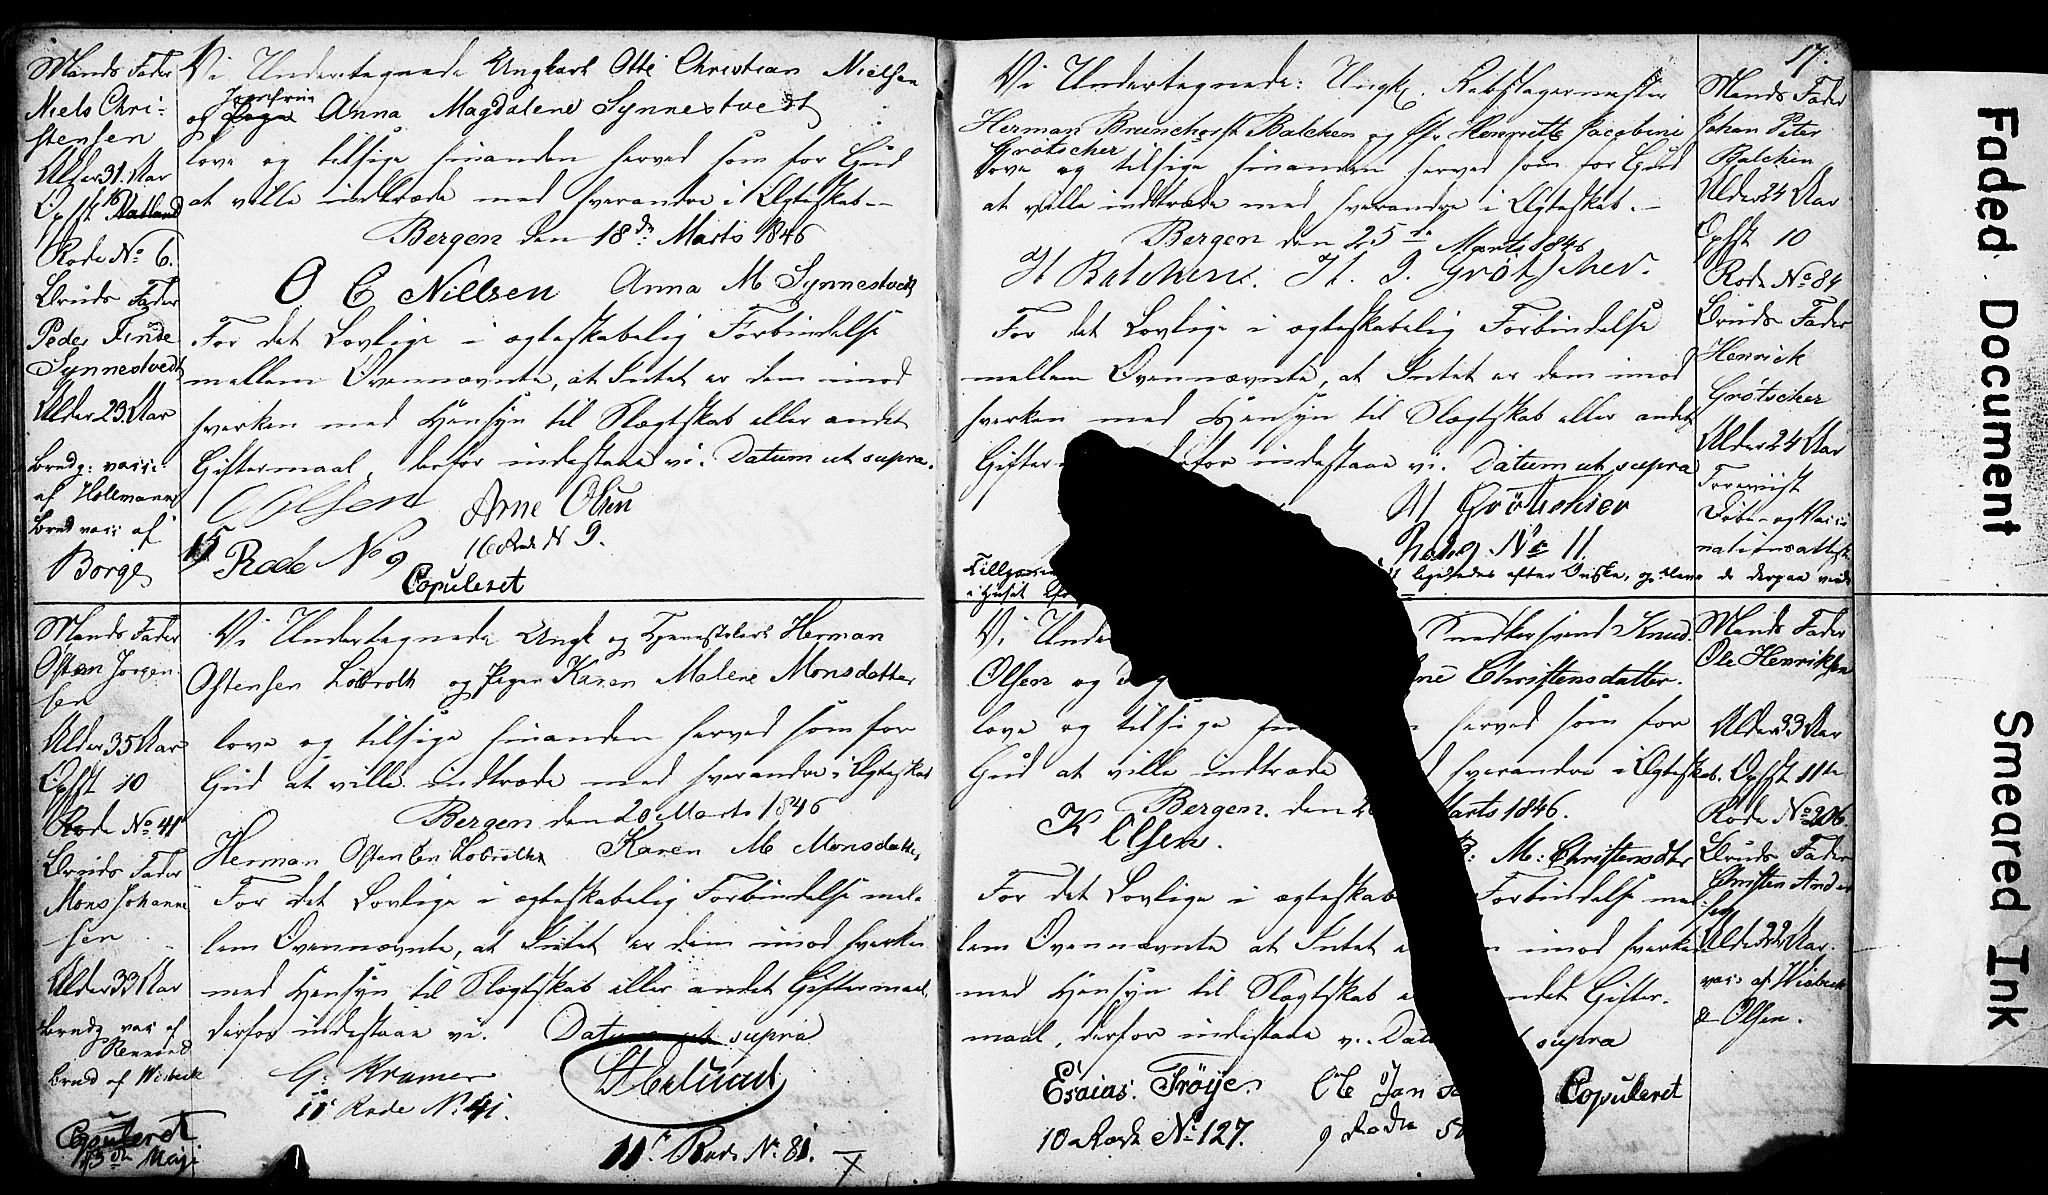 Mands Fader
Niels Chri-
stensen
Alder 31. Aar
Opfst
Rode No 6.
Bruds Fader
Peder Finde
Synnestvedt
Alder 23. Aar
brudg: vacc:
af Hollmann
brud vacc af
Borge
Vi Undertegnede Ungkarl Otte Christian Nielsen
Jomfrue
og Anna Magdalene Synnestvedt
love og tilsige hinanden herved som for Gud
at ville indtræde med hverandre i Ægteskab.-
Bergen den 18de Marts 1846
O C Nillsen Anna M Synnestvedt
For det Lovlige i ægteskabelig Forbindelse
mellem Ovennævnte, at Intet er dem imod
hverken med Hensyn til Slægtskab eller andet
Giftermaal, derfor indestaae vi. Datum ut supra.
Olsen Arne Olsen
15 Rode No 9 16 Rode N 9.
Copuleret
Mands Fader
Osten Jorgen
sen
Alder 35 Aar
Opfst 10
Rode No. 41
Bruds Fader
Mons Johanne
sen
Alder 33 Aar
brudg vacc af
brud af Wisbeck
Copuleret
13de Maji
Vi Undertegnede Ungk og Tjenestekarl Herman
Ostensen Lobrolt og Pigen Karen Malene Monsdatter
love og tilsige hinanden herved som for
Gud at ville indtræde med hverandre i Ægteskab
Bergen den 20 Marts 1846
Herman Ostensen Lobrolt Karen M Monsdatter
For det Lovlige i ægteskabelig Forbindelse mel-
lem Ovennævnte, at Intet er dem imod hverken
med Hensyn til Slægtskab eller andet Giftermaal,
derfor indestaae vi. Datum ut supra
G: Kramer
11 Rode No. 41.
11te Rode No 81.
17.
Vi Undertegnede: Ungk. Rebslagermester
Herman Brunchorst Balchen og Jfr Henriette Jacobine
Grøtscher
love og tilsige hinanden herved som for Gud
at ville indtræde med hverandre i Ægteskab.-
Bergen den 25de Marts 1846
H Balchen. H. J. Grøtscher.
For det Lovlige i ægteskabelig Forbindelse
mellem Ovennævnte, at Intet er dem imod
hverken med Hensyn til Slægtskab eller andet
Gifter derfor indestaae vi. Datum ut supra
Grötschier
No 11.
ligeledes efter Ønske, og
i Huset
Mands Fader
Johan Peter
Balchen
Alder 24 Aar
Opfst 10
Rode No 84
Bruds Fader
Henrick
Grøtscher
Alder 24 Aar
Forevist
Døbe- og Vacci
nationsattest
Vi Under Snedkersvend Knud
Olsen og ne Christensdatter.
love og tilsige hin herved som for
Gud at ville indtræde d hverandre i Ægteskab.
Bergen. den 2 Marts 1846.
K Olsen. M: Christensdtr
For det Lovlige i ægteskab Forbindelse mel
lem Ovennævnte at Intet e imod hverken
med Hensyn til Slægtskab e andet Gifter-
maal, derfor indestaae vi. Dat supra
Esaias: Tröije. Ole Jan
10 Rode No 127. 9 Rode 5
Copuleret
Mands Fader
Ole Henriksen
Alder 33 Aar
Opfst 11te
Rode No 206.
Bruds Fader
Christen Ander
sen
Alder 22 Aar.
vacc af Wisbech
& Olsen.
Faded Document
Smeared Ink